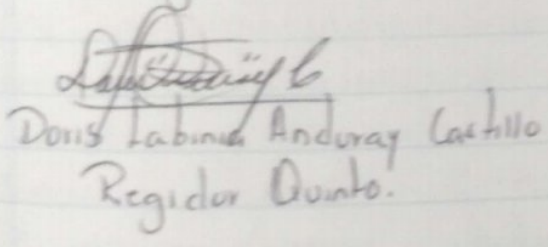 Doris Labinia Anduray Castillo
Regidor Quinto.